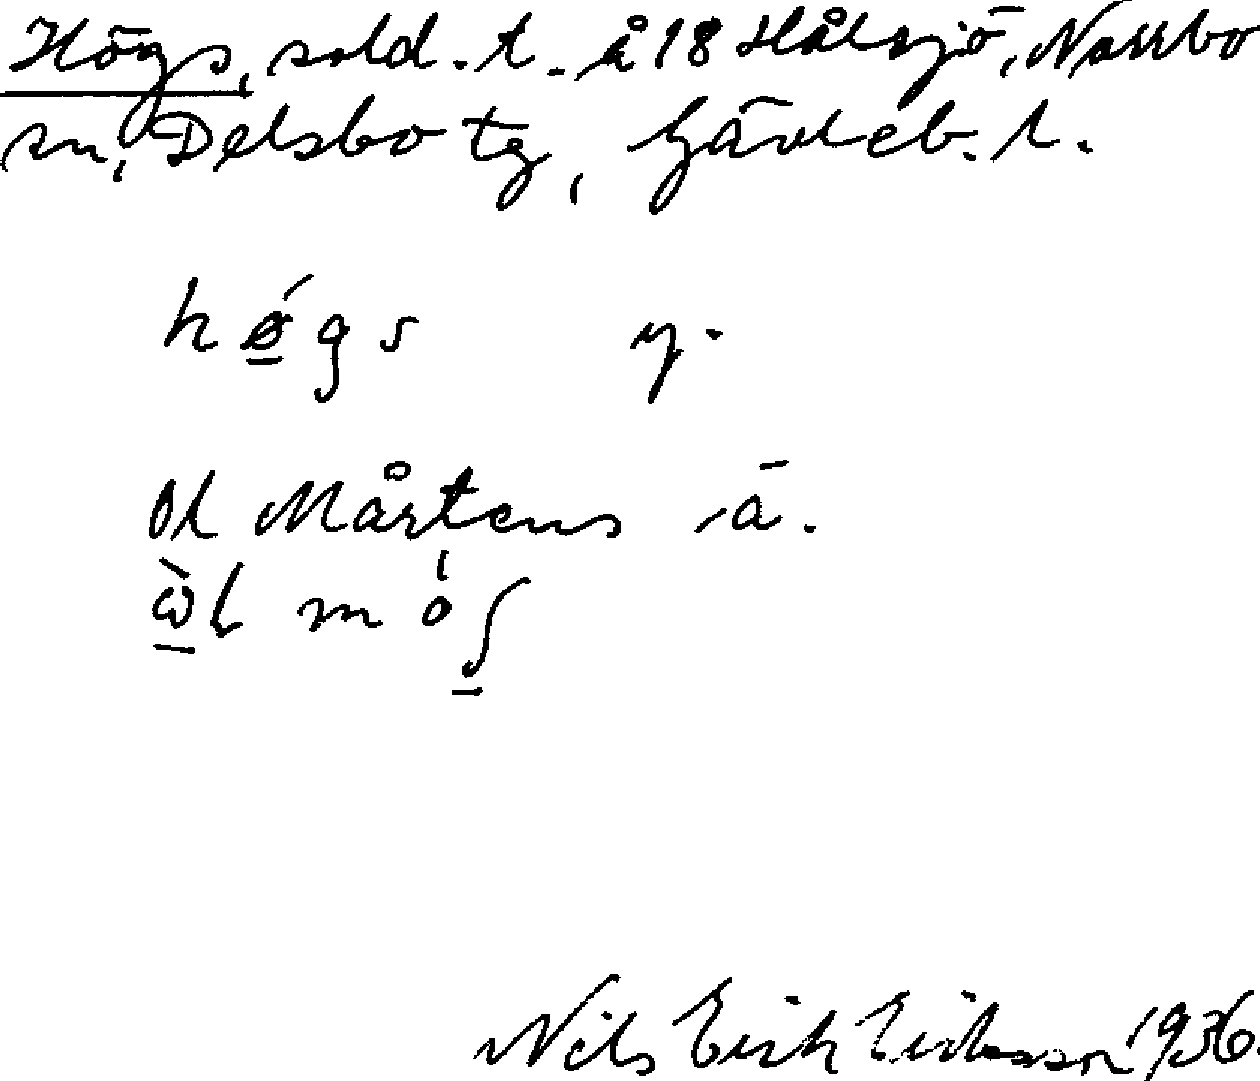 Högs, sold. t. å 18 Hålsjö, Norrbo
sn, Delsbo tg, Gävleb. l.
hǿ̲gs y.
Ol Mårtens ä.
ὼ̲l mó
Nils Erik Eriksson 1936.